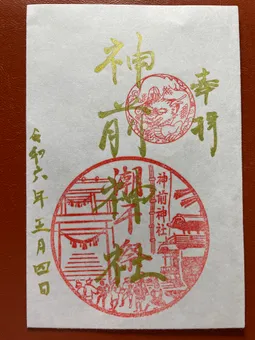 奉拝
神前神社
潮干祭
神前神社
令和六年五月四日